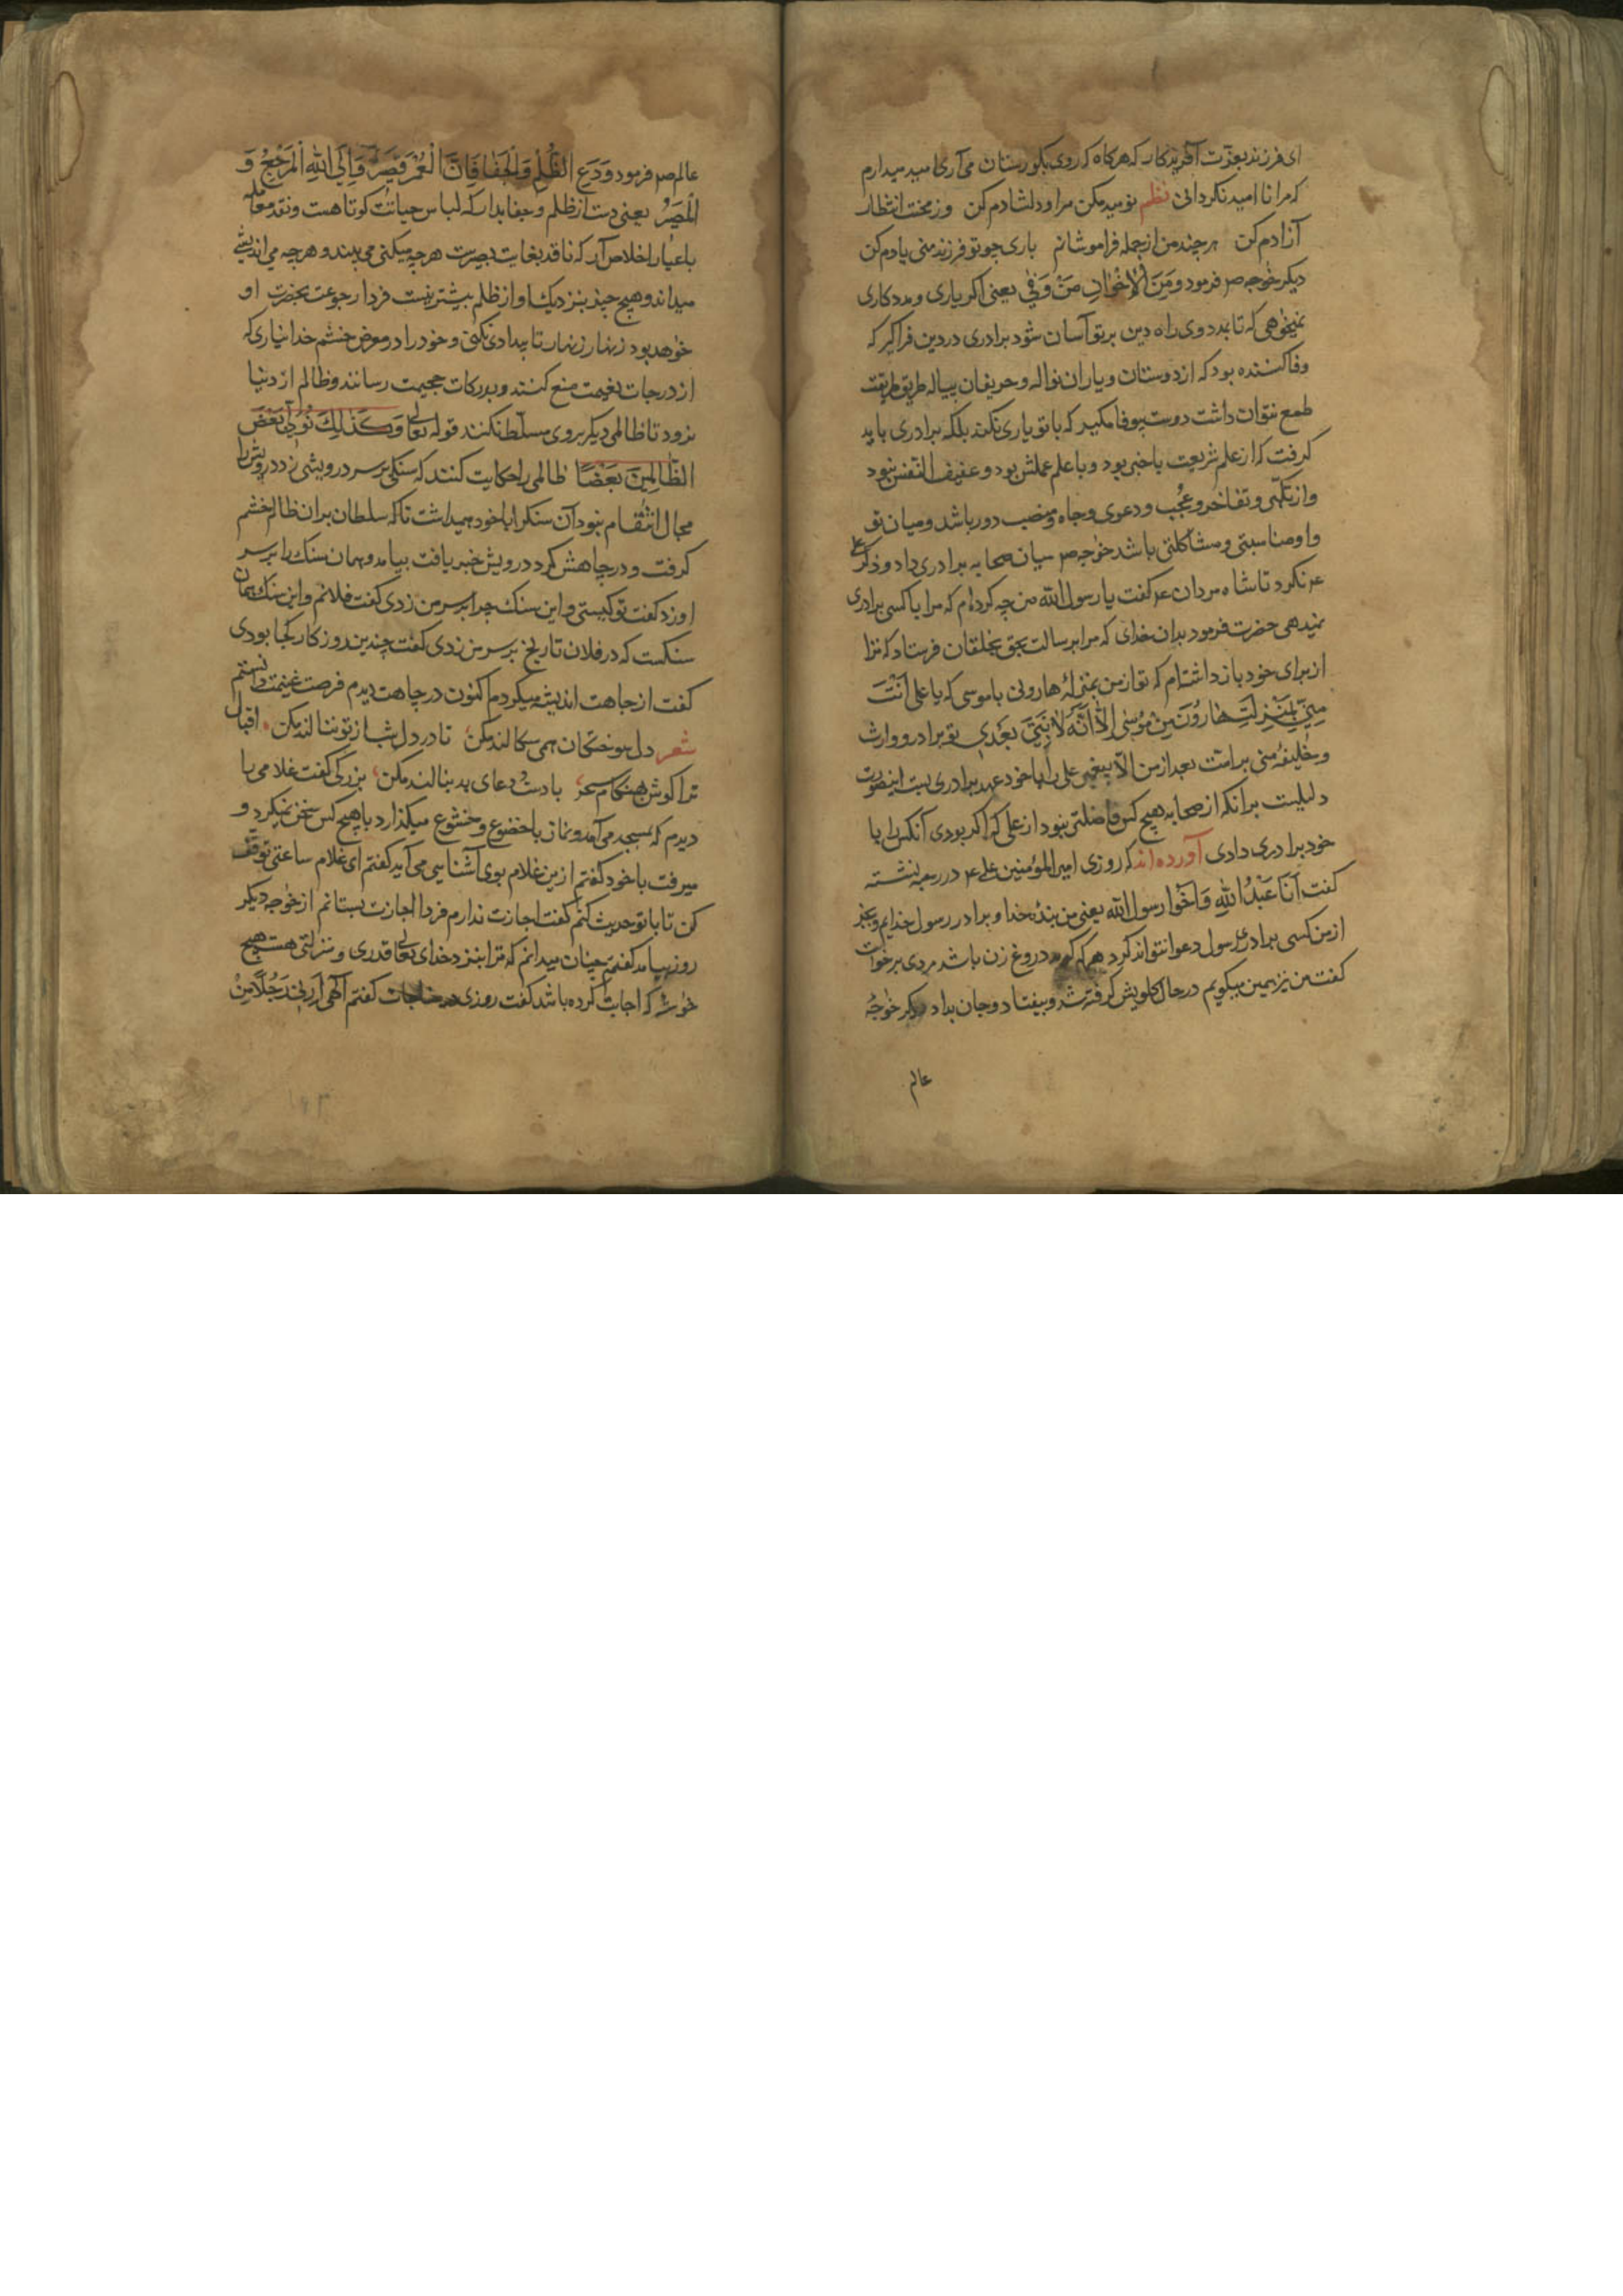 ای فرزند بعزت آفریدکار که هرکاه که روی بکورستان می آری امید میدارم
که مرا نا امید نکردانی نظم نومید مکن مرا و دلشادم کن وز محنت انتظار
آزادم کن هرچند من از جمله فراموشانم باری چو تو فرزند منی یادم کن
دیکر خواجه صم فرمود وَمَنَ الْاِخْوانِ مَنْ وَفیٰ یعنی اکر یاری و مددکاری
میخواهی که تا بمدد وی راه دین بر تو آسان شود برادری در دین فراکیر که
وفا کننده بود که از دوستان و یاران نواله و حریفان پیاله طریق طریقت
طمع نتوان داشت دوست بیوفا مکیر که با تو یاری نکند بلکه برادری باید
کرفت که از علم شریعت با خبر بود و با علم عملش بود و عفیف النفس بود
و از تکبر و تفاخر و عُجب و دعوی و جاه و منصب دور باشد و میان تو
و او مناسبتی و مشاکلتی باشد خواجه صم میان صحابه برادری داد و ذکر علی
عم نکرد تا شاه مردان عم کفت یا رسول الله من چه کرده ام که مرا با کسی برادری
نمیدهی حضرت فرمود بدان خدای که مرا برسالت بحق بخلقان فرستاد که ترا
از برای خود باز داشته ام که تو از من بمنزلهٔ هارونی با موسی که یا علی اَنْتَ
مِنّی بِمَنْزِلَتِ هٰارُوُنَ مِنْ مُوُسٰی اِلّا اَنَّهُ لٰا نَبِیَّ بَعْدی تو برادر و وارث
و خلیفهٔ منی بر امت بعد از من الا پیغمبر علی را با خود عهد برادری بست اینصورت
دلیلست برآنکه از صحابه هیچ کس فاضلتر نبود از علی که اکر بودی آنکس را با
خود برادری دادی آورده اند که روزی امیر المؤمنین علی عم در نشسته
کفت اَنَا عَبْدُ اللهِ وَ اَخُوا رسول الله یعنی من بندهٔ خدا و برادر رسول خدایم و بجز
از من کسی برادری رسول دعوا نتواند کرد هر که کوید دروغ زن باشد مردی برخواست
کفت من نیز همین میکویم در حال کلویش کرفته شد و بیفتاد و جان بداد دیکر خواجهٔ
عالم
عالم صم فرمود وَدَعِ الظُّلْمِ وَالْجَفٰا فَاِنَّ الْعُمْرَ قَصِیرٌ وَ اِلَی اللهِ الْمَرْجِعُ وَ
الْمَصیرُ یعنی دست از ظلم و جفا بدار که لباس حیاتت کوتاهست و نقد معامله
باعیار اخلاص آر که ناقد بغایت بصیرت هرچه میکنی می بیند و هرچه می اندیشی
میداند و هیچ چیز بنزدیک او از ظلم بیشتر نیست فردا رجوعت بحضرت او
خواهد بود زنهار زنهار تا بیدادی نکنی و خود را در معرض خشم خدا نیاری که
از درجات نعیمت منع کنند و بدرکات جحیمت رسانند و ظالم از دنیا
نرود تا ظالمی دیکر بر وی مسلّط نکنند قوله تعالی وَکَذٰلِکَ نُوَلّی بَعْضَ
الظّالِمِینَ بَعْضًا ظالمی را حکایت کنند که سنکی بر سر درویشی زد درویش را
مجال انتقام نبود آن سنک را با خود همیداشت تا که سلطان بران ظالم خشم
کرفت و در چاهش کرد درویش خبر یافت بیامد و همان سنک را بر سر
او زد کفت تو کیستی و این سنک چرا بر سر من زدی کفت فلانم و این سنک همان
سنکست که در فلان تاریخ بر سر من زدی کفت چندین روزکار کجا بودی
کفت از جاهت اندیشه میکردم اکنون در چاهت دیدم فرصت غنیمت دانستم
شعر دل سوختکان همی سکالند مکن تا در دل شب از تو ننالند مکن اقبال
ترا کوش هنکام سحر بادست دعای بد بنالند مکن بزرکی کفت غلامی را
دیدم که بمسجد می آمد و نماز با خضوع و خشوع میکذارد با هیچ کس سخن نمیکرد و
میرفت با خود کفتم ازین غلام بوی آشنایی می آید کفتم ای غلام ساعتی توقف
کن تا با تو حدیث کنم کفت اجازت ندارم فردا اجازت بستانم از خواجه دیکر
روز بیامد کفتم چنان میدانم که ترا بنزد خدای تعالی قدری و منزلتی هست هیچ
خواسته که اجابت کرده باشد کفت روزی در مناجات کفتم الٰهی اَرِنی رَجُلًا مِنْ